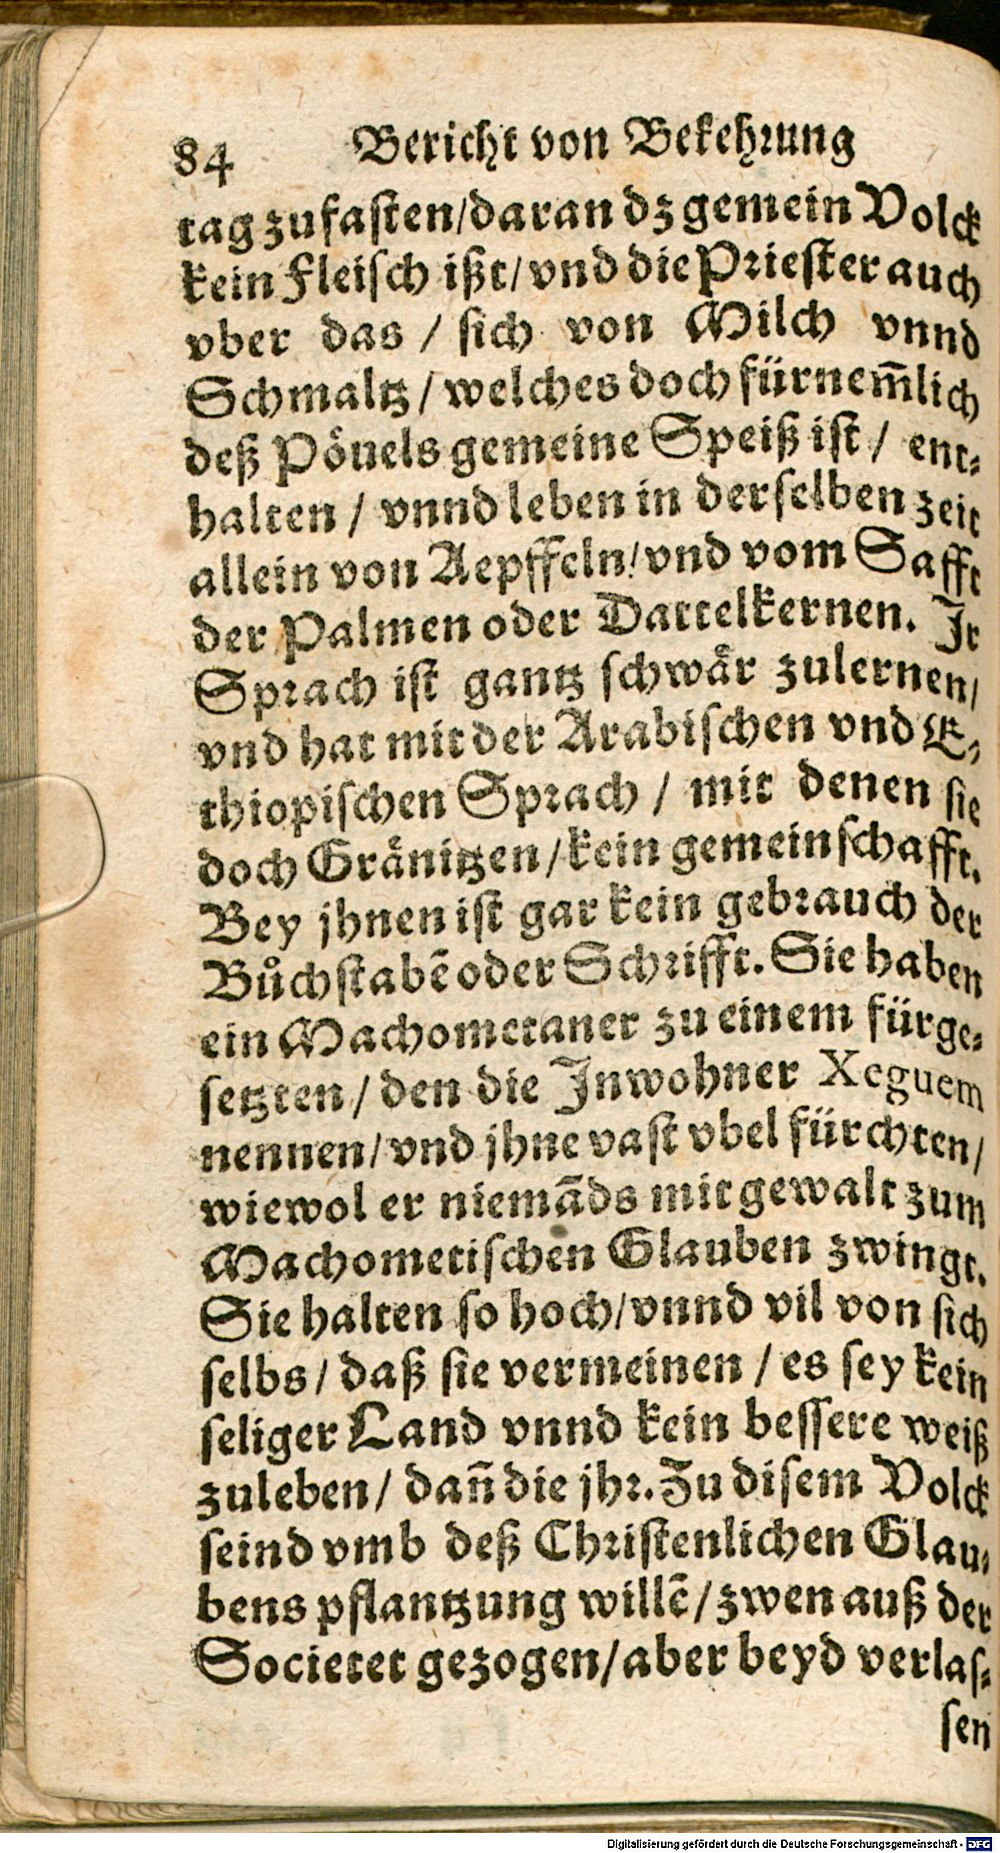 84 Bericht von Bekehrung
tag zufasten/daran dz gemein Volck
kein Fleisch ißt/vnd die Priester auch
vber das / sich von Milch vnnd
Schmaltz/welches doch fürnem̃lich
deß Pöuels gemeine Speiß ist/ ent-
halten / vnnd leben in derselben zeit
allein von Aepffeln/vnd vom Safft
der Palmen oder Dattelkernen. Jr
Sprach ist gantz schwär zulernen/
vnd hat mit der Arabischen vnd E-
thiopischen Sprach / mit denen sie
doch Gränitzen/kein gemeinschafft.
Bey jhnen ist gar kein gebrauch der
Bůchstabẽ oder Schrifft. Sie haben
ein Machometaner zu einem fürge-
setzten/den die Jnwohner Xeguem
nennen/vnd jhne vast vbel fürchten/
wiewol er niemãds mit gewalt zum
Machometischen Glauben zwingt.
Sie halten so hoch/vnnd vil von sich
selbs/daß sie vermeinen /es sey kein
seliger Land vnnd kein bessere weiß
zuleben/ dañ die jhr. Zu disem Volck
seind vmb deß Christenlichen Glau-
bens pflantzung willẽ/zwen auß der
Societet gezogen/aber beyd verlas-
sen
Digitalisierung gefördert durch die Deutsche Forschungsgemeinschaft - DFG